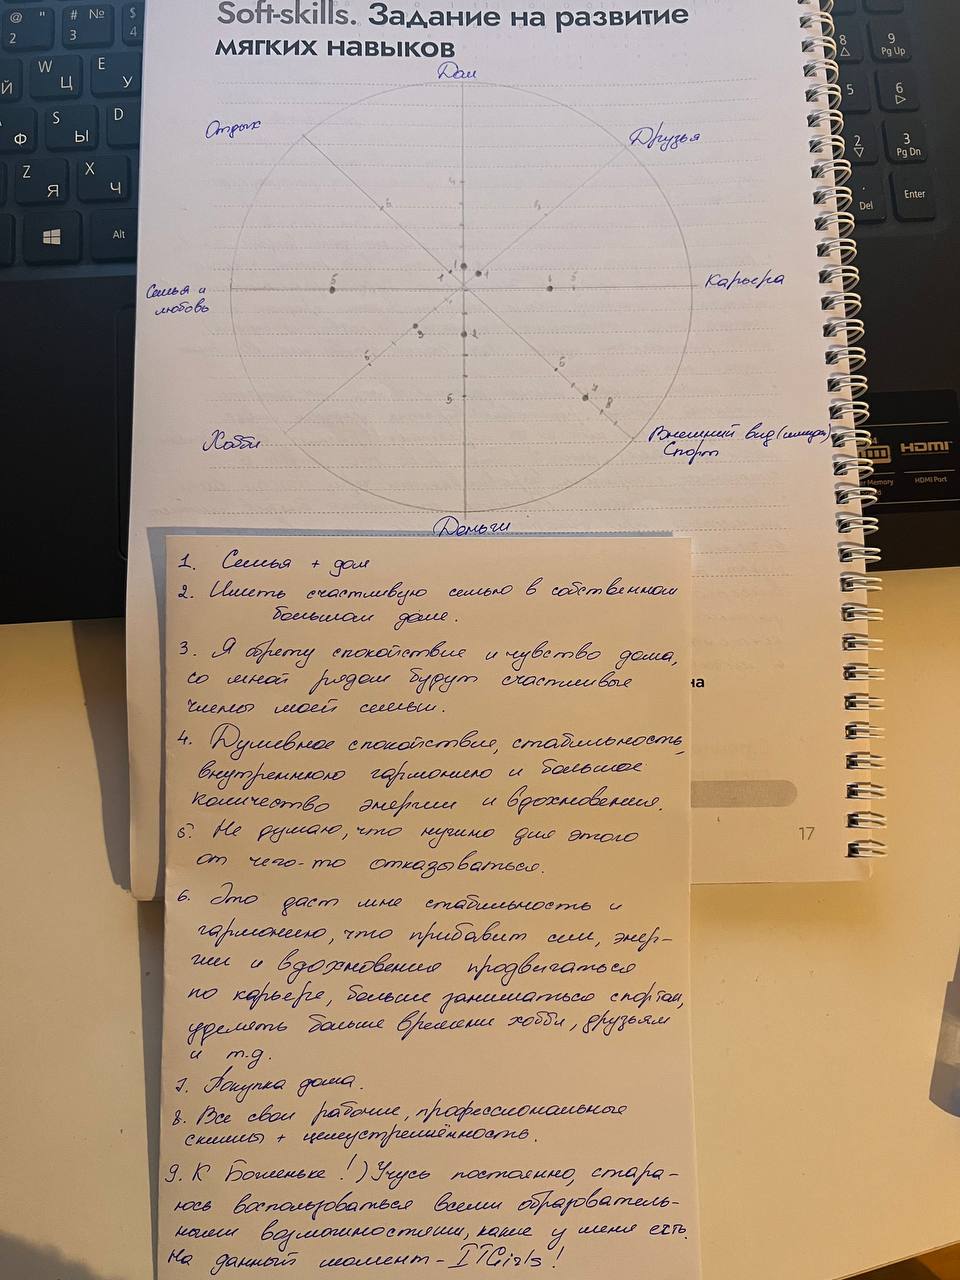 Soft-skills. Задание на развитие
мягких навыков
Дом
Отдых
Друзья
Семья и
любовь
Карьера
Хобби
Внешний вид (имидж)
Спорт
Деньги
1. Семья + дом
2. Иметь счастливую семью в собственном
большом доме.
3. Я обрету спокойствие и чувство дома,
со мной рядом будут счастливые
члены моей семьи.
4. Душевное спокойствие, стабильность,
внутреннюю гармонию и большое
количество энергии и вдохновения.
5. Не думаю, что нужно для этого
от чего-то отказываться.
6. Это даст мне стабильность и
гармонию, что прибавит сил, энер-
гии и вдохновения продвигаться
по карьере, больше заниматься спортом,
уделять больше времени хобби, друзьям
и т.д.
7. Покупка дома.
8. Все свои рабочие, профессиональные
скиллы + целеустремлённость.
9. К Боженьке!) Учусь постоянно, стара-
юсь воспользоваться всеми образователь-
ными возможностями, какие у меня есть.
На данный момент - ITGirls!
на
17
HDMI
HDMI Port
@ " # № $
2 3 4
W Ц E У
Й
Ф S Ы D
Z Я X Ч
Alt
8 9 Pg Up
5 6
2 3 Pg Dn
. Del Enter